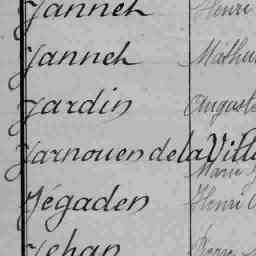 Janneh Henri
Janneh Mathu
Jardin August
Jarnouen de la Ville
Marie
Jégaden Henri
Jehan Pierre